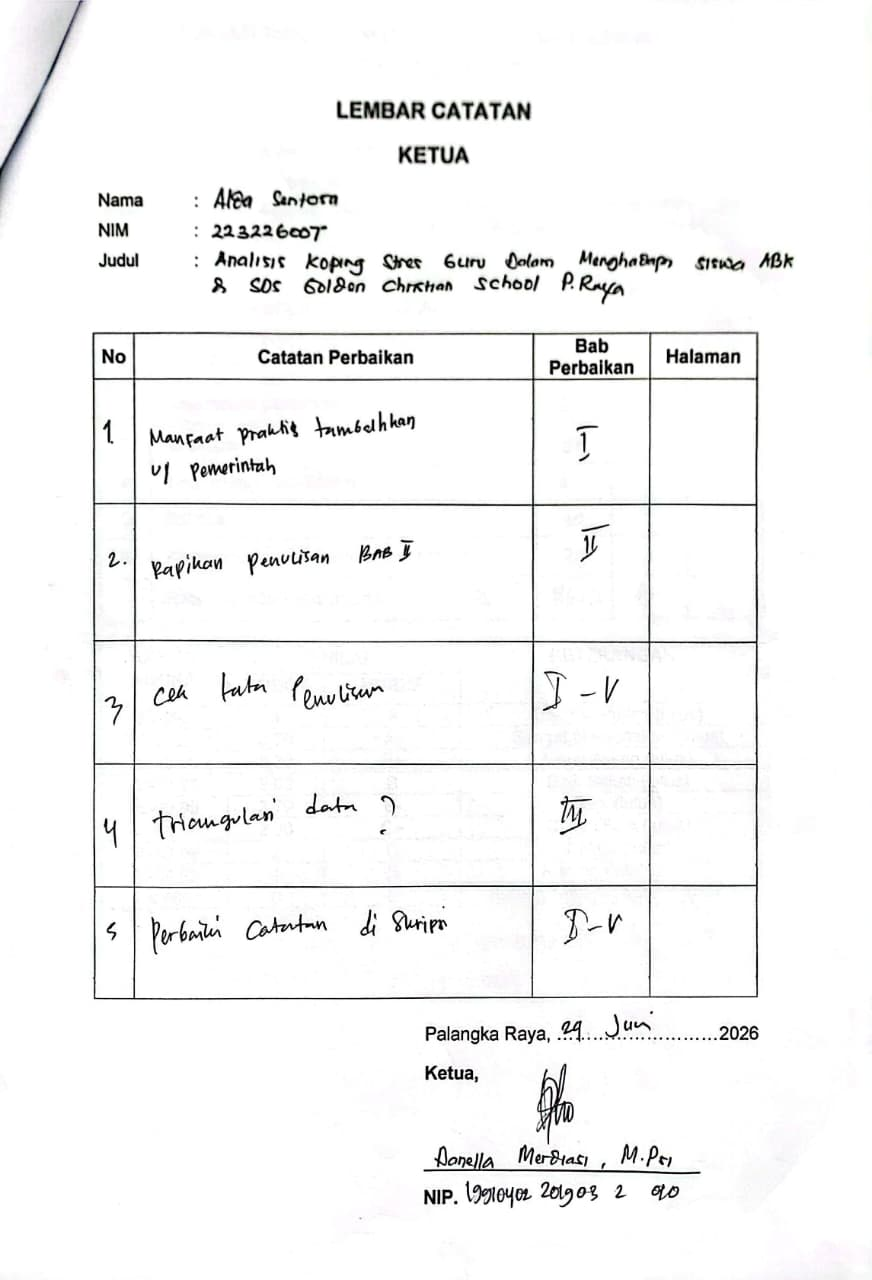 LEMBAR CATATAN
KETUA
Nama : Alda Santosa
NIM : 223226007
Judul : Analisis Koping Stres Guru Dalam Menghadapi siswa ABK
di SDS Golden Christian School P. Raya
No Catatan Perbaikan Bab Perbaikan Halaman
1. Manfaat praktis tambahkan I
u/ pemerintah
2. Rapihan Penulisan BAB II II
3 Cek tata Penulisan I - V
4 triangulasi data ? III
5 Perbaiki Catatan di Skripsi I - V
Palangka Raya, 29 Juni 2026
Ketua,
Donella Merdiasi, M.Psi
NIP. 19910402 201903 2